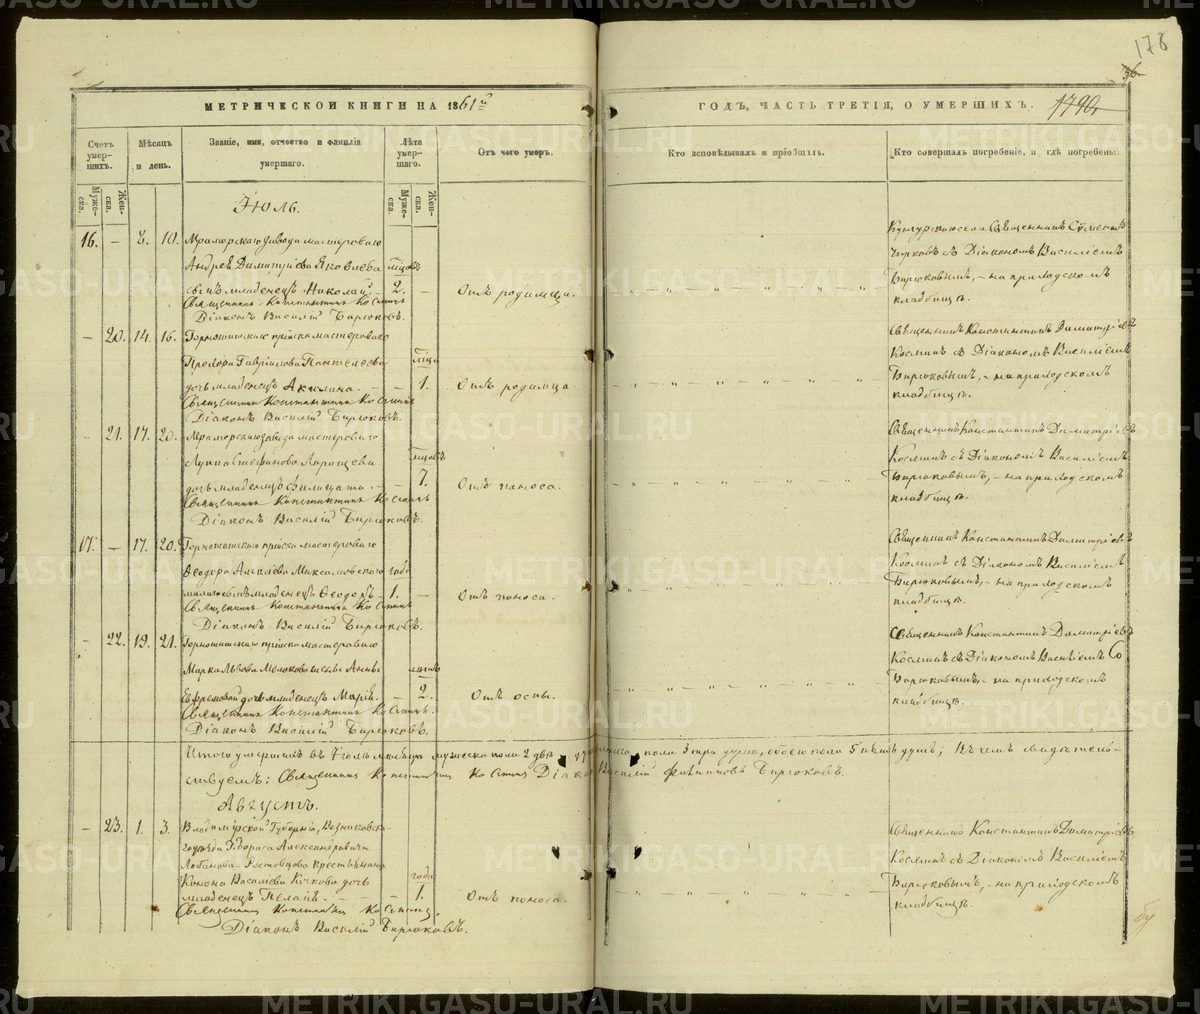 178
МЕТРИЧЕСКОЙ КНИГИ НА 1861й
ГОДЪ, ЧАСТЬ ТРЕТІЯ, О УМЕРШИХЪ.
1790
Счетъ умер-шихъ.
Мѣсяцъ и день.
Званіе, имя, отчество и фамилія умершаго.
Лѣта умер-шаго.
Отъ чего умеръ.
Кто исповѣдывалъ и пріобщалъ.
Кто совершалъ погребеніе, и гдѣ погребены.
Муже-ска.
Жен-ска.
Муже-ска.
Жен-ска.
Іюль.
16. – 8. 10. Мраморскаго завода мастероваго
Андрея Димитріева Яковлева мцовъ
сынъ младенецъ Николай. – 2. – Отъ родимца.
Священникъ Константинъ Косминъ
Діаконъ Василій Бирюковъ.
Священникъ
Чирковъ съ Діакономъ Василіемъ
Бирюковымъ, – на приходскомъ
кладбищѣ.
– 20. 14. 16. Горнощитскаго пріиска мастероваго
Прохора Гавріилова Пантелеева мцъ
дочь младенецъ Акилина. – – 1. Отъ родимца
Священникъ Константинъ Косминъ
Діаконъ Василій Бирюковъ.
Священникъ Константинъ Димитріевъ
Косминъ съ Діакономъ Василіемъ
Бирюковымъ, – на приходскомъ
кладбищѣ.
– 21. 17. 20. Мраморскаго завода мастероваго
Стефанова мцовъ
дочь младенецъ – – 7. Отъ поноса.
Священникъ Константинъ Косминъ
Діаконъ Василій Бирюковъ.
Священникъ Константинъ Димитріевъ
Косминъ съ Діакономъ Василіемъ
Бирюковымъ, – на приходскомъ
кладбищѣ.
17. – 17. 20. Горнощитскаго пріиска мастероваго
Ѳеодора Максимовскаго года
сынъ младенецъ Ѳеодоръ – 1. – Отъ поноса.
Священникъ Константинъ Косминъ
Діаконъ Василій Бирюковъ.
Священникъ Константинъ Димитріевъ
Косминъ съ Діакономъ Василіемъ
Бирюковымъ, – на приходскомъ
кладбищѣ.
– 22. 19. 21. Горнощитскаго пріиска мастероваго
Марка Львова Анны
Ефремовой дочь младенецъ Марія. – 2. Отъ оспы.
Священникъ Константинъ Косминъ.
Діаконъ Василій Бирюковъ.
Священникъ Константинъ Димитріевъ
Косминъ съ Діакономъ Василіемъ
Бирюковымъ, – на приходскомъ
кладбищѣ.
Итого умершихъ въ Іюлѣ мѣсяцѣ мужеска пола 2 два, женска пола 3 три души, обоего пола 5 пять душъ; въ чемъ свидѣтель-
ствуемъ: Священникъ Константинъ Косминъ Діаконъ Василій Филиповъ Бирюковъ.
Августъ.
– 23. 1. 3. Владимірской Губерніи, Вязниковска-
го уѣзда Александровича
Лобанова-Ростовцова крестьянина
Конона Василіева Кочкова дочь года
младенецъ Пелагія. – – 1. Отъ поноса.
Священникъ Константинъ Косминъ,
Діаконъ Василій Бирюковъ.
Священникъ Константинъ Димитріевъ
Косминъ съ Діакономъ Василіемъ
Бирюковымъ, – на приходскомъ
кладбищѣ.
METRIKI.GASO-URAL.RU